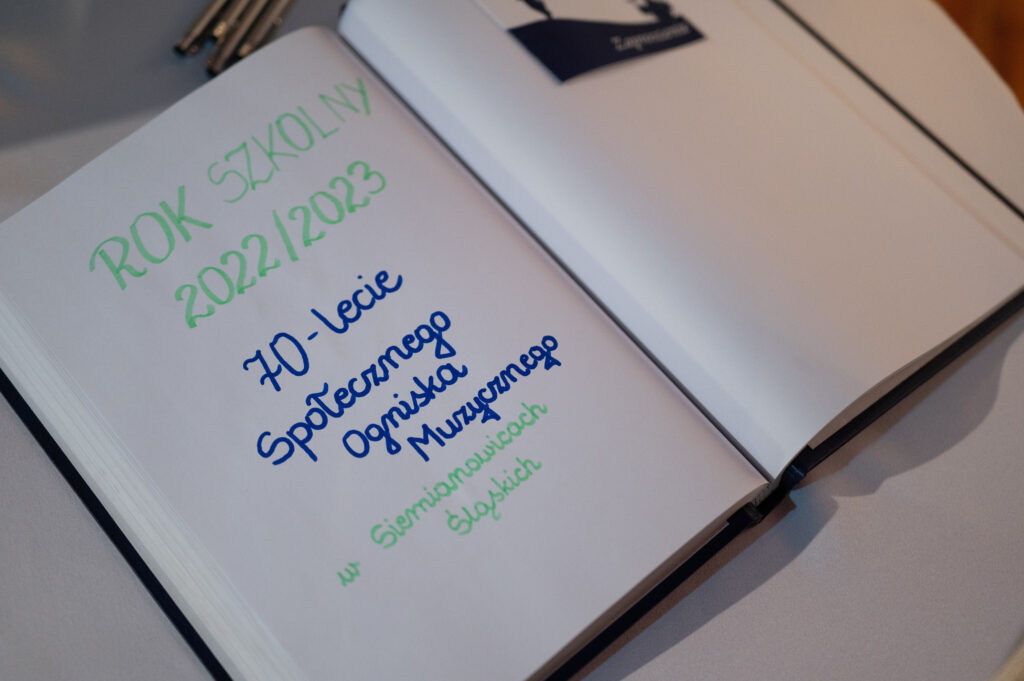 ROK SZKOLNY
2022/2023
70-lecie
Społecznego
Ogniska
Muzycznego
w Siemianowicach
Śląskich
Zaproszenie